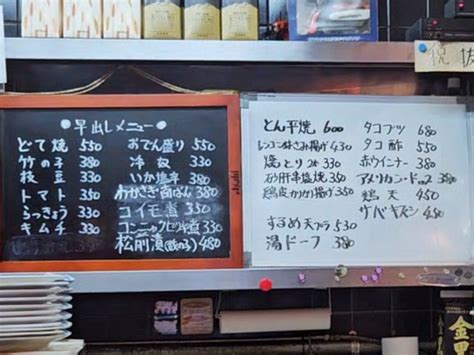 早出しメニュー
どて焼 550
竹の子 380
枝豆 330
トマト 350
らっきょう 330
キムチ 330
おでん盛り 550
冷奴 330
いか塩辛 330
わかさぎ南ばん 380
コイモ煮 350
コンニャクピリ辛煮 330
松前漬(数の子) 480
とん平焼 600
レンコンはさみ揚げ 430
焼とり 2本 330
砂肝辛塩焼 350
鶏皮カリカリ揚げ 350
すずめ天プラ 530
湯ドーフ 380
タコブツ 680
タコ酢 550
赤ウインナー 380
アメリカンドッグ 380
鶏天 450
サバキズシ 450